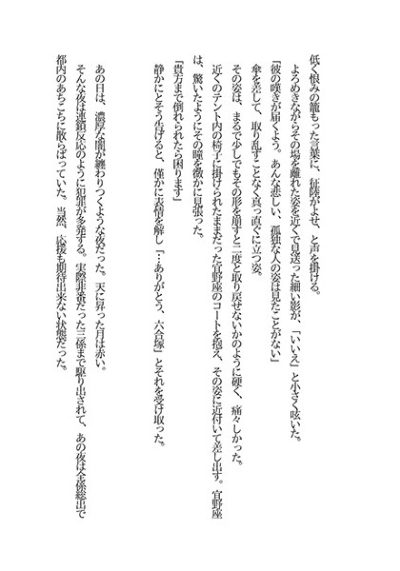 低く恨みの籠もった言葉に、征陸がよせ、と声を掛ける。
よろめきながらその場を離れた姿を近くで見送った細い影が、「いいえ」と小さく呟いた。
「彼の嘆きが届くよう。あんな悲しい、孤独な人の姿は見たことがない」
傘を差して、取り乱すことなく真っ直ぐに立つ姿。
その姿は、まるで少しでもその形を崩すと二度と取り戻せないかのように硬く、痛々しかった。
近くのテント内の椅子に掛けられたままだった宜野座のコートを抱え、その姿に近付いて差し出す。宜野座
は、驚いたようにその瞳を微かに見張った。
「貴方まで倒れられたら困ります」
静かにとそう告げると、僅かに表情を解し「…ありがとう、六合塚」とそれを受け取った。
あの日は、濃厚な闇が纏わりつくような夜だった。天に昇った月は赤い。
そんな夜は連鎖反応のように犯罪が多発する。実際非番だった三係まで駆り出されて、あの夜は全係総出で
都内のあちこちに散らばっていた。当然、応援も期待出来ない状態だった。